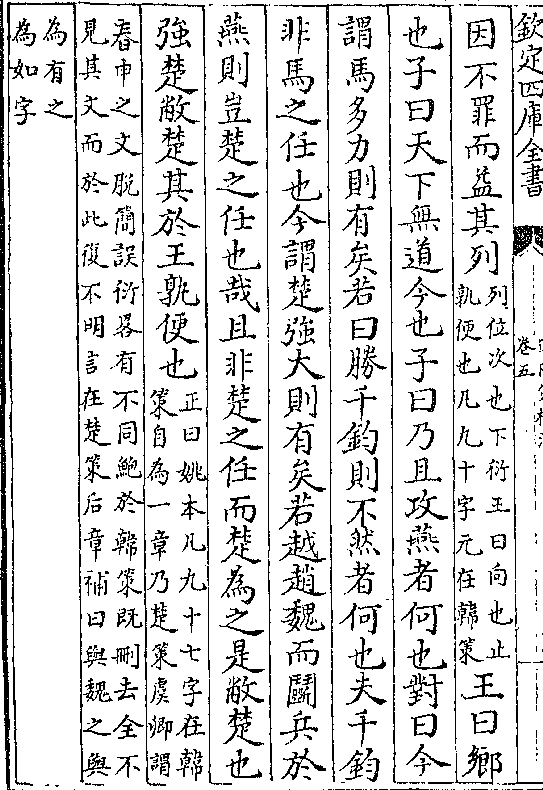 欽定四庫全書
卷五
因不罪而益其列列位次也下衍王曰向也止孰便也凡九十字元在韓策王曰鄉
也子曰天下無道今也子曰乃且攻燕者何也對曰今
謂馬多力則有矣若曰勝千鈞則不然者何也夫千鈞
非馬之任也今謂楚強大則有矣若越趙魏而鬭兵於
燕則豈楚之任也哉且非楚之任而楚為之是敝楚也
強楚敝楚其於王孰便也正曰姚本凡九十七字在韓策自為一章乃楚策虞卿謂
春申之文脫簡誤衍畧有不同鮑於韓策既刪去全不
見其文而於此復不明言在楚策后章補曰與魏之與
為有之
為如字